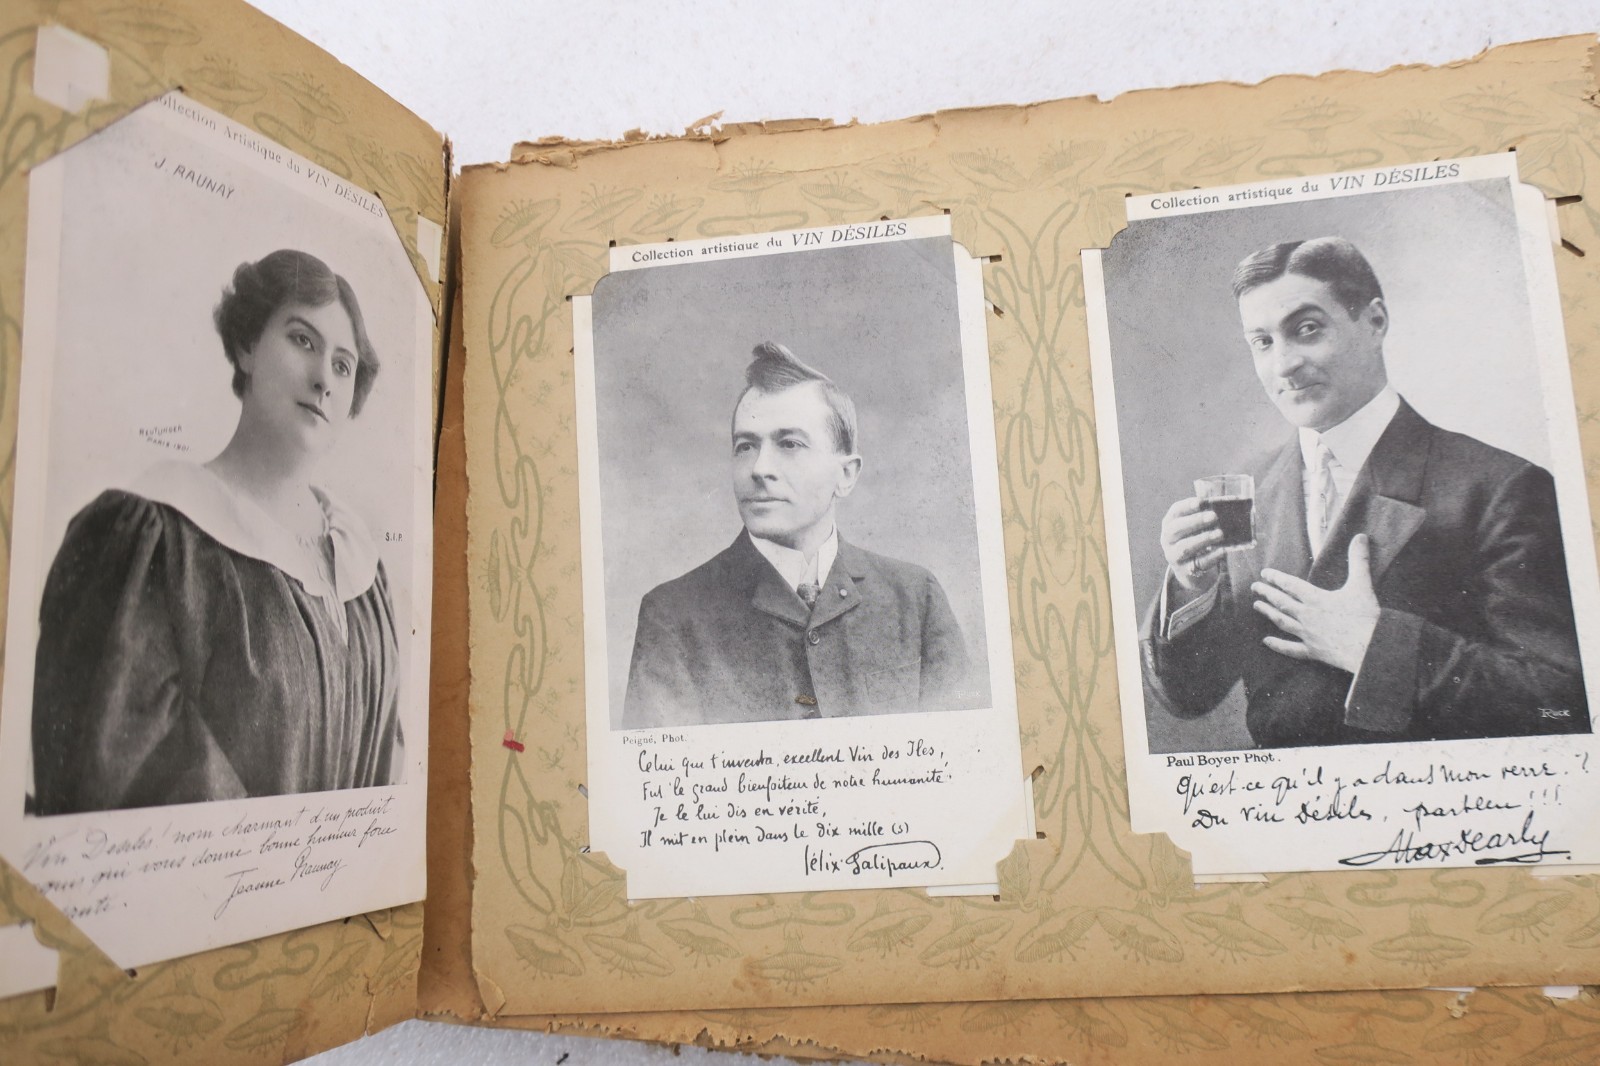 Collection Artistique du VIN DÉSILES
J. RAUNAY
REUTLINGER
PARIS 1901
S.I.P.
Vin Désiles! nom charmant d'un produit
qui vous donne bonne humeur force
Jeanne Raunay
Collection artistique du VIN DÉSILES
Peigné, Phot.
Celui qui t'inventa, excellent Vin des Iles,
Fut le grand bienfaiteur de notre humanité!
Je le lui dis en vérité,
Il mit en plein dans le dix mille (s)
félix Galipaux.
Collection artistique du VIN DÉSILES
Ruck
Paul Boyer Phot.
Qu'est-ce qu'il y a dans mon verre..?
Du Vin Désiles, parbleu!!!
Max Dearly.